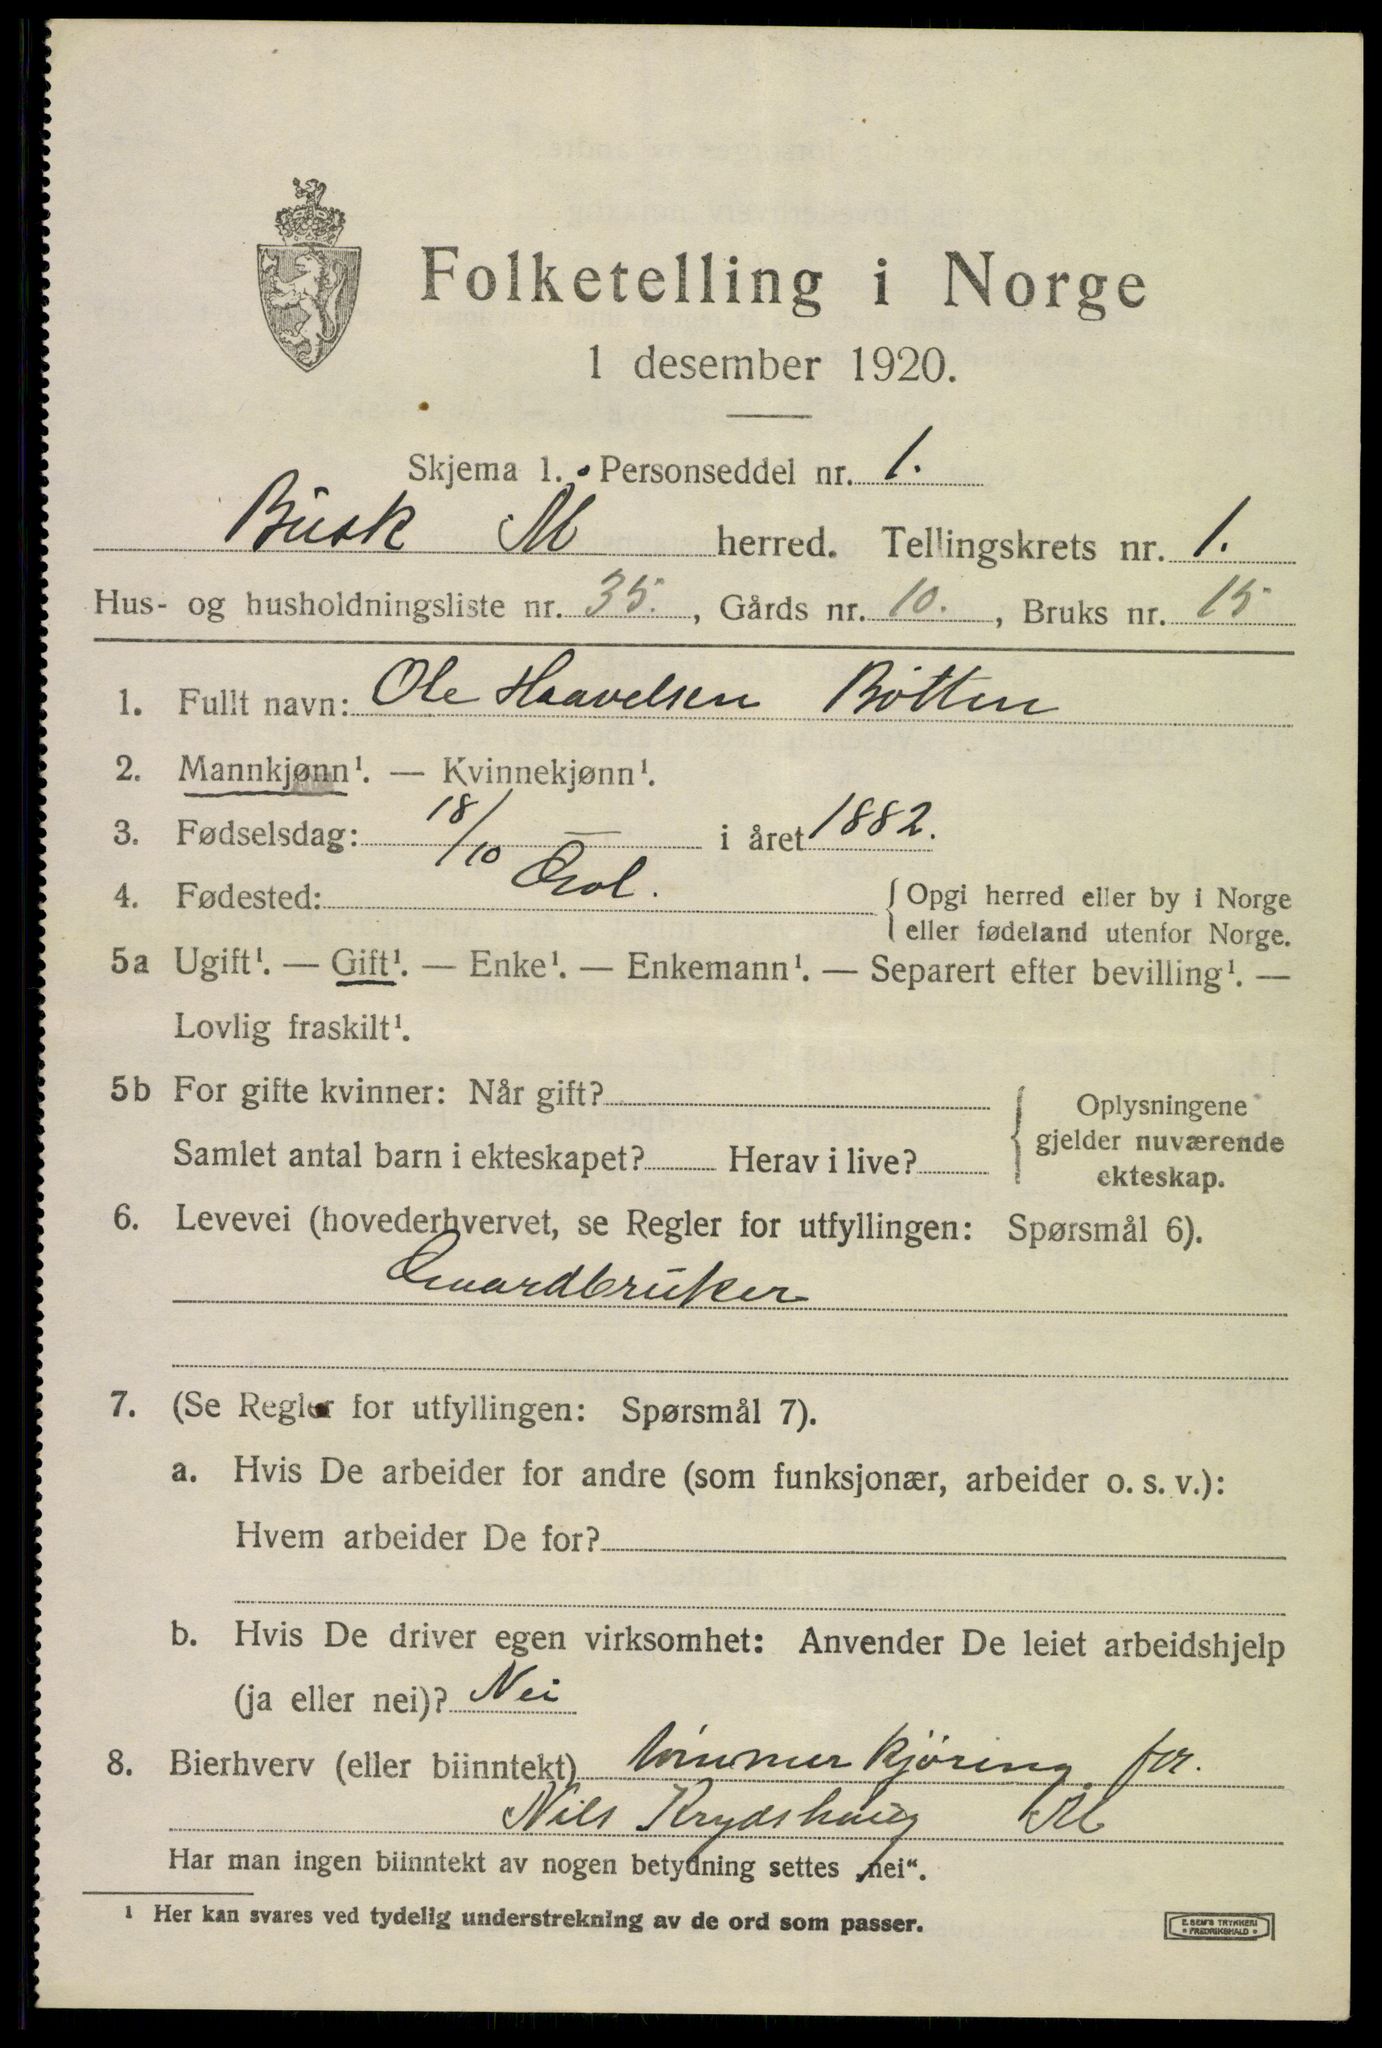 Folketelling i Norge
1 desember 1920.
Skjema 1. Personseddel nr. 1.
Busk Ål herred. Tellingskrets nr. 1.
Hus- og husholdningsliste nr. 35., Gårds nr. 10., Bruks nr. 15
1. Fullt navn: Ole Haavelsen Bøtten
2. Mannkjønn¹. — Kvinnekjønn¹.
3. Fødselsdag: 18/10 — i året 1882.
4. Fødested: Gol. { Opgi herred eller by i Norge
eller fødeland utenfor Norge.
5a Ugift¹. — Gift¹. — Enke¹. — Enkemann¹. — Separert efter bevilling¹. —
Lovlig fraskilt¹.
5b For gifte kvinner: Når gift?
Samlet antal barn i ekteskapet? Herav i live?
{ Oplysningene
gjelder nuværende
ekteskap.
6. Levevei (hovederhvervet, se Regler for utfyllingen: Spørsmål 6).
Gaardbruker
7. (Se Regler for utfyllingen: Spørsmål 7).
a. Hvis De arbeider for andre (som funksjonær, arbeider o. s. v.):
Hvem arbeider De for?
b. Hvis De driver egen virksomhet: Anvender De leiet arbeidshjelp
(ja eller nei)? Nei
8. Bierhverv (eller biinntekt) tømmerkjøring for.
Nils Krydshaug Ål
Har man ingen biinntekt av nogen betydning settes „nei“.
¹ Her kan svares ved tydelig understrekning av de ord som passer.
E. SEM'S TRYKKERI
• FREDRIKSHALD •